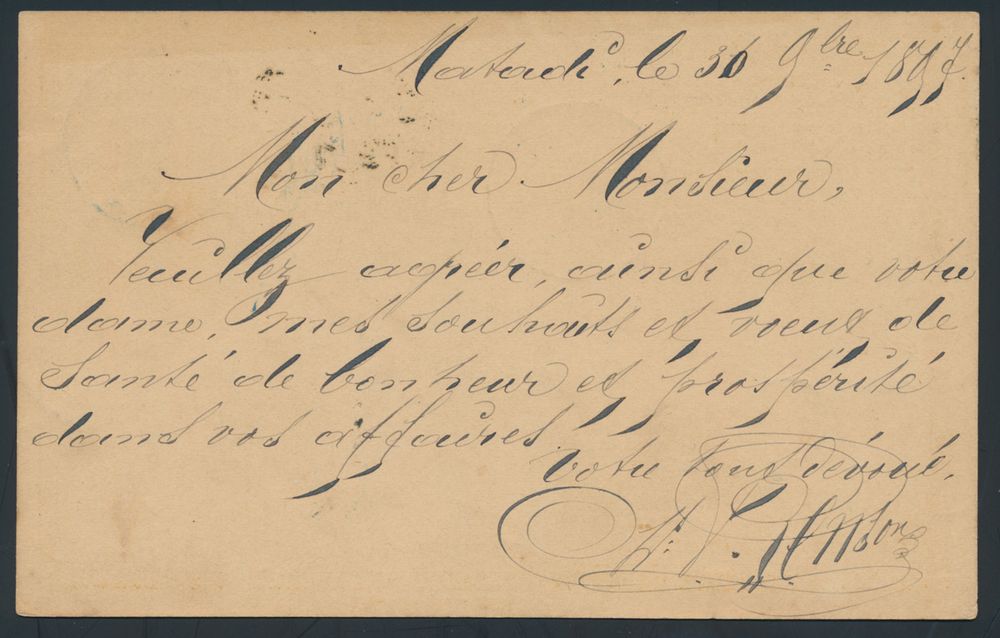 Matadi, le 30 9bre 1897.
Mon cher Monsieur,
Veuillez agréer, ainsi que votre
dame, mes souhaits et voeux de
Santé de bonheur et prospérité
dans vos affaires
votre tout dévoué.